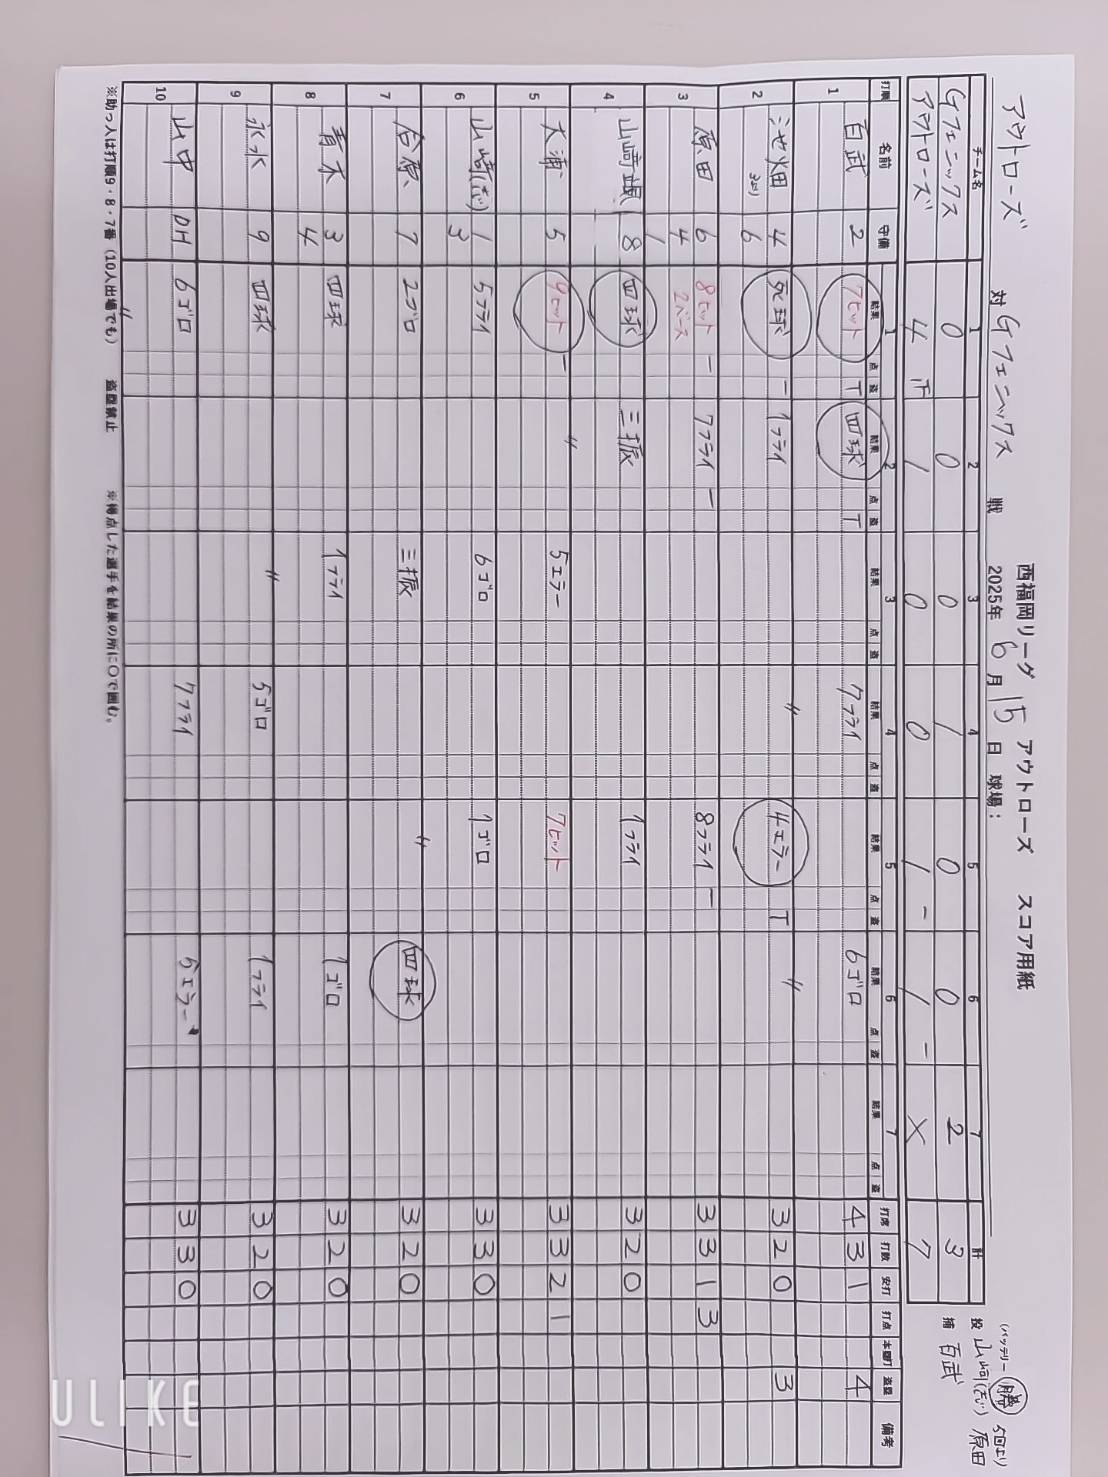 アウトローズ 対 Gフェニックス 戦 2025年 6月 15日 球場：
西福岡リーグ アウトローズ スコア用紙
チーム名 1 2 3 4 5 6 7 計
Gフェニックス 0 0 0 1 0 0 2 3
アウトローズ 4 1 0 0 1 1 X 7
(バッテリー 勝 5回より
投 山崎(志) 原田
捕 百武
打順 名前 守備 結果 1 点 盗 結果 2 点 盗 結果 3 点 盗 結果 4 点 盗 結果 5 点 盗 結果 6 点 盗 結果 7 点 盗 打席 打数 安打 打点 本塁打 盗塁 備考
1 百武 2 7ヒット T 四球 T 7フライ 6ゴロ 4 3 1 4
2 池畑 4 死球 一 1フライ 〃 4エラー T 〃 3 2 0 3
6
3 原田 6 8ヒット 一 7フライ 一 8フライ 一 3 3 1 3
4 2ベース
1
4 山崎颯 8 四球 三振 1フライ 3 2 0
5 大浦 5 9ヒット 一 〃 5エラー 7ヒット 3 3 2 1
6 山崎(志) 1 5フライ 6ゴロ 1ゴロ 3 3 0
3
7 合原 7 2ゴロ 三振 〃 四球 3 2 0
8 青木 3 四球 1フライ 1ゴロ 3 2 0
4
9 永水 9 四球 〃 5ゴロ 1フライ 3 2 0
10 山中 DH 6ゴロ 7フライ 5エラー 3 3 0
〃
※助っ人は打順9・8・7番（10人出場でも） 盗塁禁止 ※得点した選手を結果の所に〇で囲む。
ULIKE